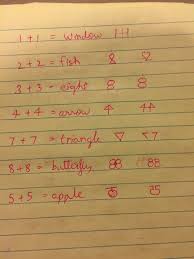 1 + 1 = window
2 + 2 = fish 8
3 + 3 = eight 8 8
4 + 4 = arrow 4 44
7 + 7 = triangle 7
8 + 8 = butterfly 88 88
5 + 5 = apple